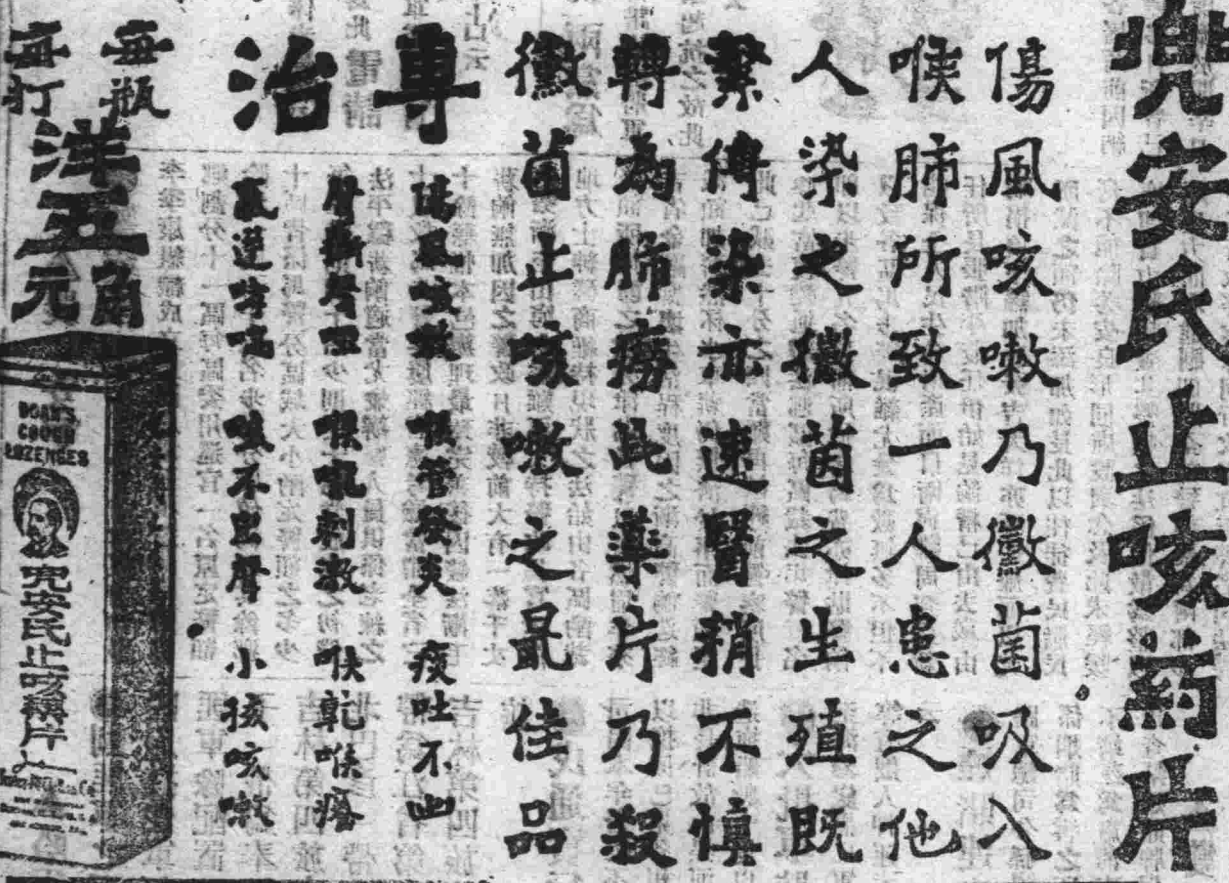 兜安氏止咳葯片
傷風咳嗽乃黴菌吸入
喉肺所致一人患之他
人染之黴菌之生殖既
繁傳染亦速醫稍不慎
轉為肺癆此藥片乃殺
黴菌止咳嗽之最佳品
專治
傷風咳嗽 喉管發炎 痰吐不出
聲嘶聲啞 喉嚨刺激 喉乾喉癢
氣逆哮喘 咳不出聲 小孩咳嗽
每瓶
每打
洋五
角
元
DOAN'S
COUGH
LOZENGES
兜安氏止咳藥片